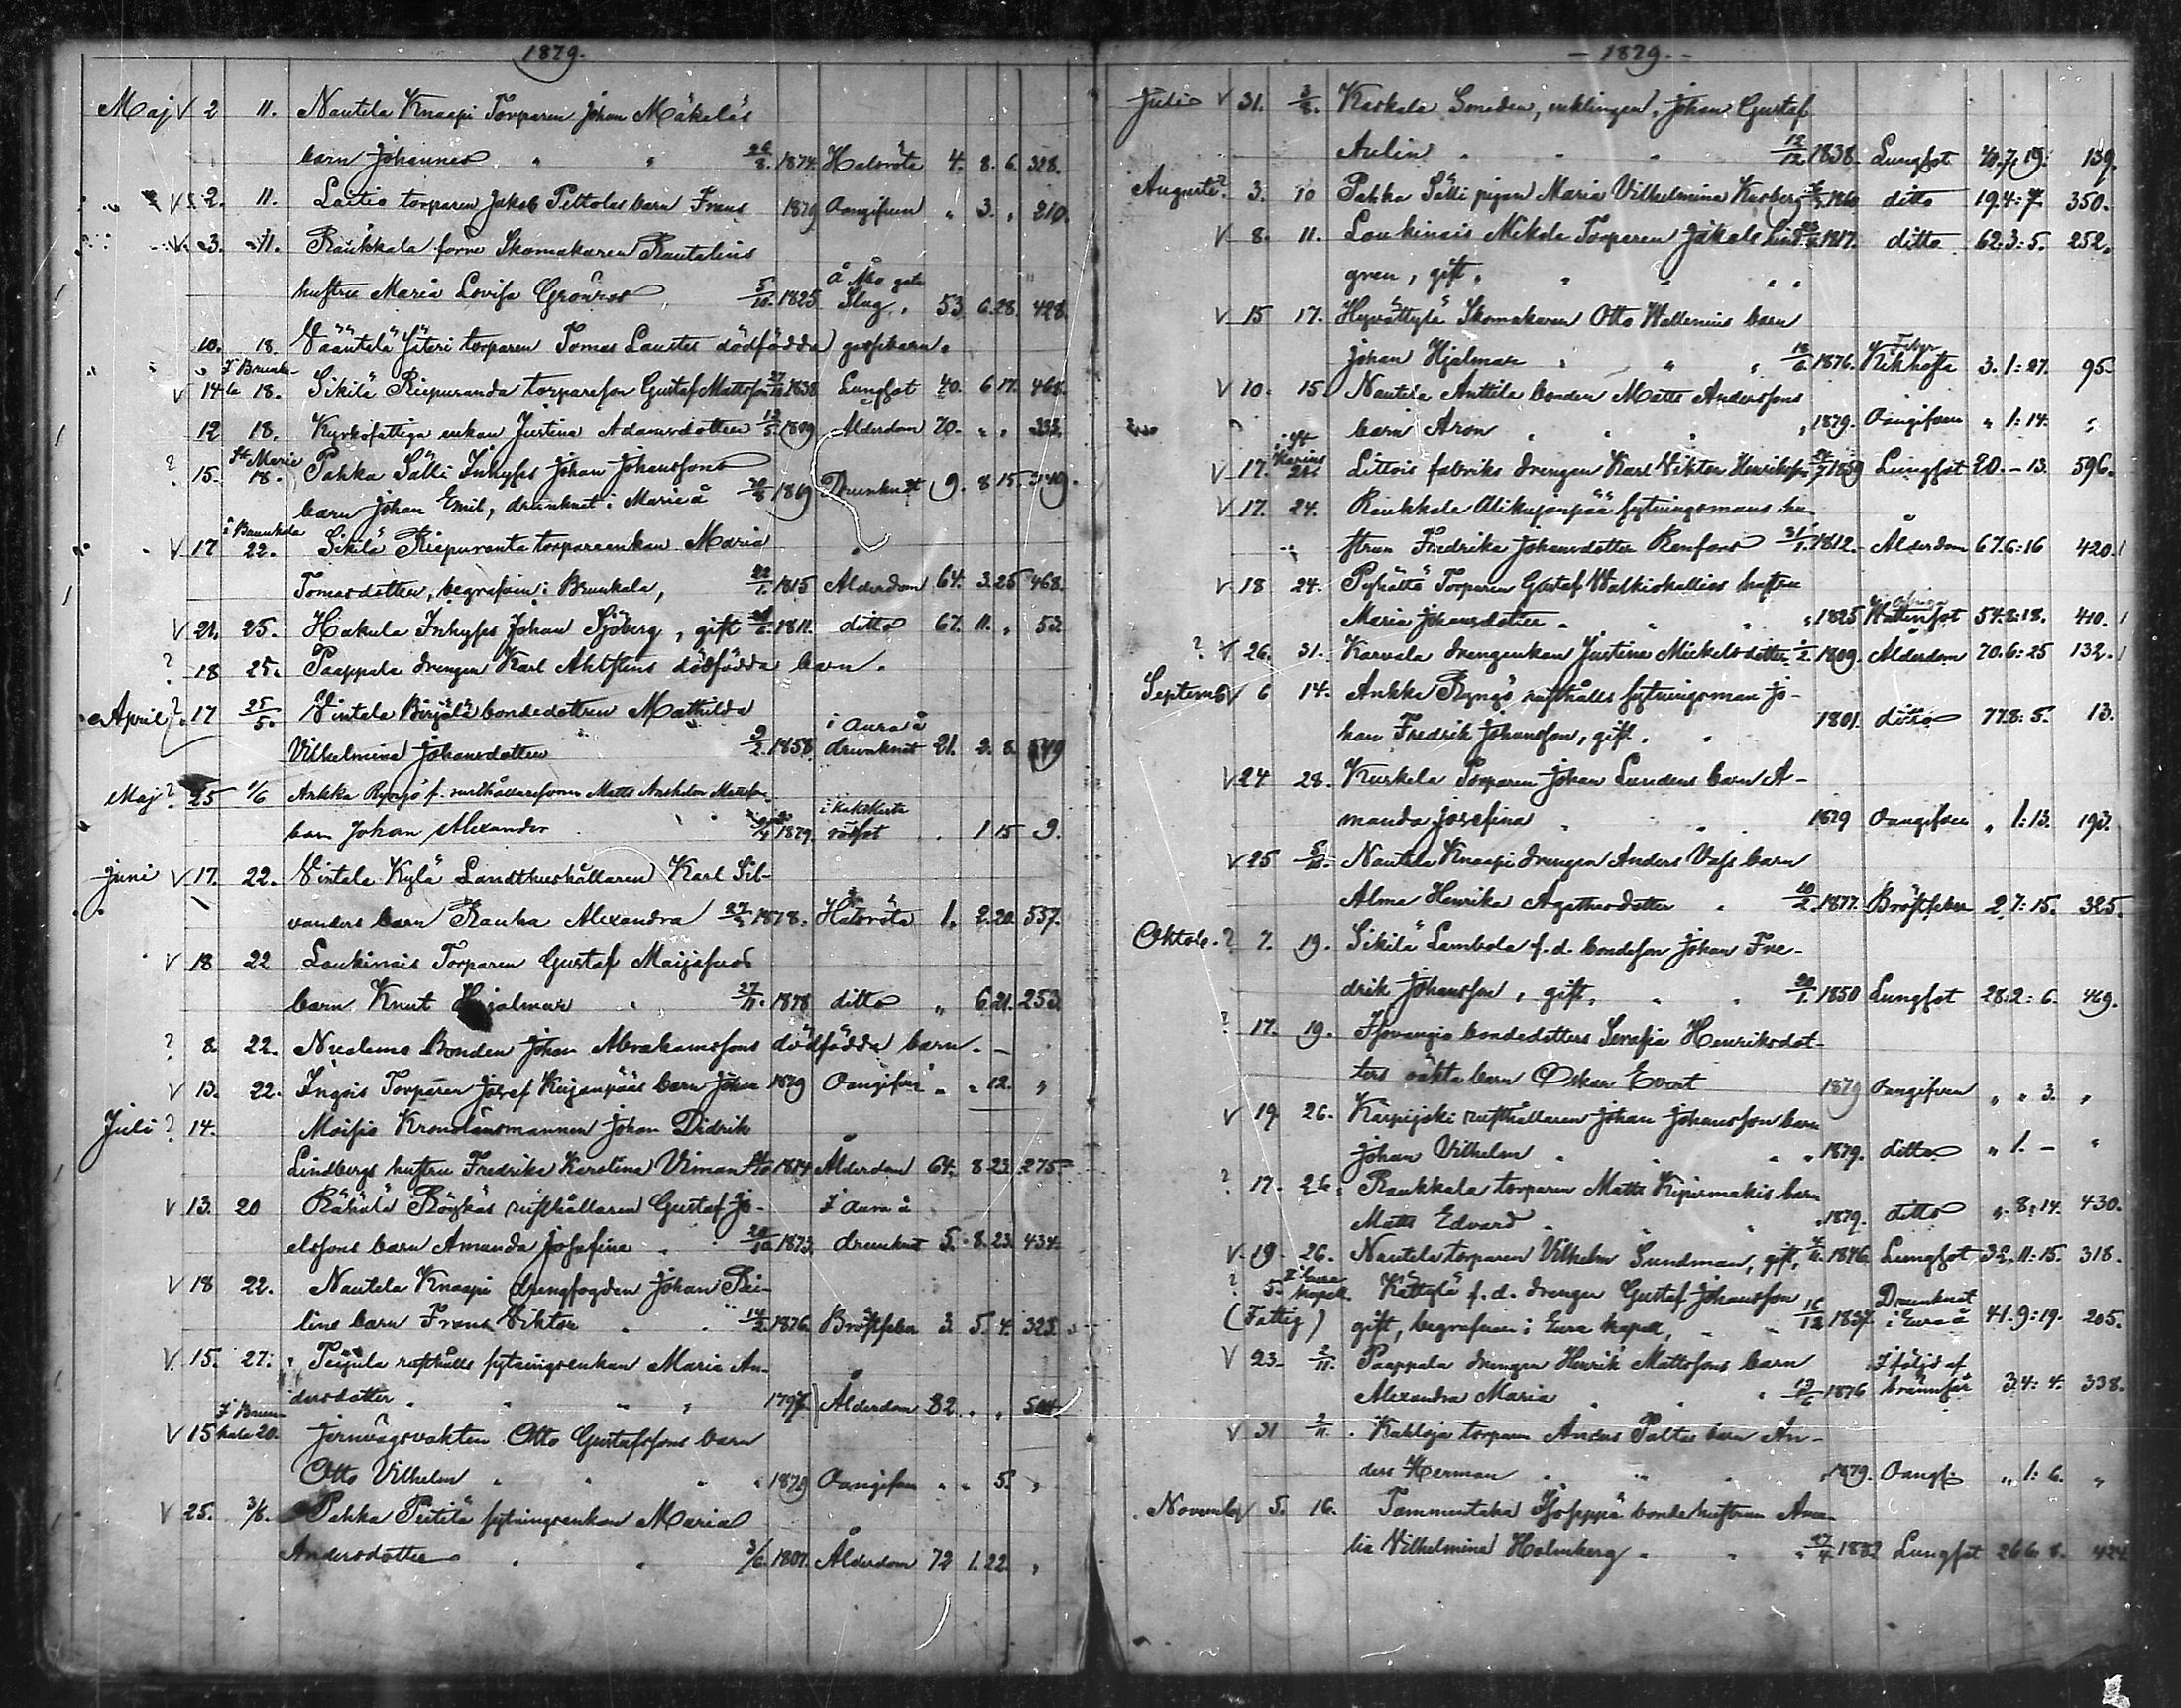 1879.
Maj V 2 11. Nautela Knaapi Torparen Johan Mäkeläs
barn Johannes " " 26/8. 1874. Halsröta 4. 8. 6. 328.
V 2. 11. Laitio torparen Jakob Peltolas barn Frans 1879 Oangifven " 3. " 210.
V 3. 11. Raukkala förre Skomakaren Rautelins
hustru Maria Lovisa Grönroos 5/10. 1825. Slag. 53 6. 28. 428.
10. 18. Vääntelä Jiteri torparen Tomas Laustes dödfödda gossebarn.
V 14 18. Sikilä Riepuranda torpareson Gustaf Mattsson 1838 Lungsot 40. 6 17. 468.
12 18. Kyrkofattiga enkan Justina Adamsdotter 1809 Ålderdom 70. " " 232.
? 15. St Marie 18. Pahka Sälli Inhyses Johan Johanssons
barn Johan Emil, drunknat i Marie å 1869 Drunknat 9. 8 15. 349.
V 17 i Brunkala 22. Sikilä Riepuranta torpareenkan Maria
Tomasdotter, begrafven i Brunkala, 22/1. 1815 Ålderdom 64. 3. 25 468.
V 21. 25. Hakula Inhyses Johan Sjöberg, gift 1811. ditto 67. 11. " 53.
? 18 25. Paappala drengen Karl Ahlstens dödfödda barn.
April ? 17 25/5. Vintala Birjälä bondedottren Mathilda
i Aura å
Vilhelmina Johansdotter 9/2. 1858. drunknat 21. 2. 8. 549
Maj ? 25 1/6 Ankka Ryngö f. rusthållaresonen Matts Anshelm Mattss.
barn Johan Alexander 1879. . 1 15 9.
Juni V 17. 22. Vintala Kylä Landthushållaren Karl Sil-
vanders barn Rauha Alexandra 27/3 1878. Halsröta 1. 2. 20. 537.
V 18 22 Loukinais Torparen Gustaf Maijasuos
barn Knut Hjalmar " 27/11. 1878 ditto " 6. 21. 253.
? 8. 22. Nuolemo Bonden Johan Abrahamssons dödfödda barn. —
V 13. 22. Ingois Torparen Josef Kujanpääs barn Johan 1879 Oangifven " " 12. "
Juli ? 14. Moisio Kronolänsmannen Johan Didrik
Lindbergs hustru Fredrika Karolina Viman 1814 Ålderdom 64. 8. 23. 275.
V 13. 20 Rähälä Röykäs rusthållaren Gustaf Jo- I Aura å
elssons barn Amanda Josefina " 20/10 1873. drunknat 5. 8. 23. 434.
V 18 22. Nautela Knaapi drengfogden Johan Rei-
lins barn Frans Viktor " 14/2. 1876. Bröstfeber 3. 5. 4. 325.
V. 15. 27. Teijula rusthålls sytningsenkan Maria An-
dersdotter " " " 1797. Ålderdom 82. " " 504.
V 15 I Brunkala 20. Jernvägsvakten Otto Gustafssons barn
Otto Vilhelm " " " " 1879 Oangifven " " 5. "
V 25. 3/8. Pahka Peitilä sytningsenkan Maria
Andersdotter " " 3/6. 1807. Ålderdom 72 1. 22. "
— 1879. —
Julio V 31. 3/8. Kaskala Smeden, enklingen, Johan Gustaf
Aulin " " " 12/12 1838. Lungsot 40. 7. 19. 159.
Augusti ? 3. 10 Pahka Sälli pigan Maria Vilhelmina Karberg 1860 ditto 19. 4: 7. 350.
V 8. 11. Loukinais Mikola Torparen Jakob Lind- 1817. ditto 62: 3: 5. 252.
gren, gift. " " " "
V 15 17. Hyvättylä Skomakaren Otto Wallenius barn
Johan Hjalmar " " " 18/6 1876. Kikhosta 3. 1: 27. 95.
V 10. 15 Nautela Anttila bonden Matts Anderssons
barn Aron " " " " 1879. Oangifven " 1: 14. "
V 17. Karins 24. Littois fabriks drengen Karl Viktor Henriksson 1859 Lungsot 20. – 13. 596.
V 17. 24. Raukkala Alikujanpää sytningsmans hu-
strun Fredrika Johansdotter Renfors 31/1. 1812. Ålderdom 67. 6: 16 420.
V 18 24. Pyhältö Torparen Gustaf Walkiokallios hustru
Maria Johansdotter " " " " 1825 Wattensot 54: 8: 18. 410.
? V 26. 31. Karvala drengenkan Justina Mickelsdotter 1809. Ålderdom 70. 6: 25 132.
Septemb. V 6 14. Ankka Ryngö rusthålls sytningsman Jo-
han Fredrik Johansson, gift. " 1801. ditto 77. 8: 5. 13.
V 24 28. Kurkela Torparen Johan Lundens barn A-
manda Josefina " " " 1879 Oangifven " 1: 13. 193.
V 25 5/10. Nautela Knaapi drengen Anders Vass barn
Alma Henrika Agathasdotter " 10/2. 1877. Bröstfeber 2. 7: 15. 325.
Oktob. ? 7. 19. Sikilä Lambola f. d. bondeson Johan Fre-
drik Johansson, gift, " " 20/1. 1850 Lungsot 28. 2: 6. 469.
? 17. 19. Isovangio bondedotters Serafia Henriksdot-
ters oäkta barn Oskar Evert 1879 Oangifven " " 3. "
V 19. 26. Karpijoki rusthållaren Johan Johanssons barn
Johan Vilhelm " " " " 1879. ditto " 1. – "
? 17. 26. Raukkala torparen Matts Kipirmäkis barn
Matts Edvard " " " 1879. ditto " 8: 14. 430.
V. 19. 26. Nautela torparen Vilhelm Sundman, gift, 1846. Lungsot 32. 11: 15. 318.
? 5. I Eura kapell. Kättylä f. d. drengen Gustaf Johansson Drunknat
(Fattig) gift, begrafven i Eura kapell, " " 16/12 1837. i Eura å 41. 9: 19. 205.
V 23. 2/11. Paappala drengen Henrik Mattssons barn I följd af
Alexandra Maria " " 13/6 1876 brännsår 3. 4: 4. 338.
V 31 2/11. Kahloja torparen Anders Paltas barn An-
ders Herman " " " 1879. Oangf: " 1: 6. "
November V 5. 16. Tammentaka Isoseppä bondehustrun Ama-
lia Vilhelmina Holmberg " " 27/4 Lungsot 26. 6. 8. 424